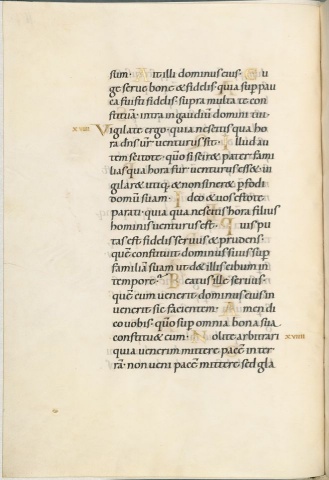 sum· A it illi dominus eius· Eu
ge serve bone & fidelis· quia sup pau
ca fuisti fidelis· supra multa te con
stituā· intra in gaudiū domini tui·
XVIII Vigilate ergo· quia nescitis qua ho
ra dn̄s ur̄ venturus sit· Illud au
tem scitote· quō si sciret pater fami
lias qua hora fur venturus esset· vi
gilaret utiq· & non sineret pfodi
domū suam· Ideo & vos estote
parati· quia qua nescitis hora filius
hominis venturus est· Quis pu
tas est fidelis servus & prudens·
quē constituit dominus suus sup
familiā suam ut det illis cibum in
tempore· Beatus ille servus·
quē cum venerit dominus eius in
venerit sic facientem· Amen di
co vobis· quō sup omnia bona sua
constituet eum· Nolite arbitrari XVIIII
quia venerim mittere pacē in ter
rā· non veni pacē mittere sed gla